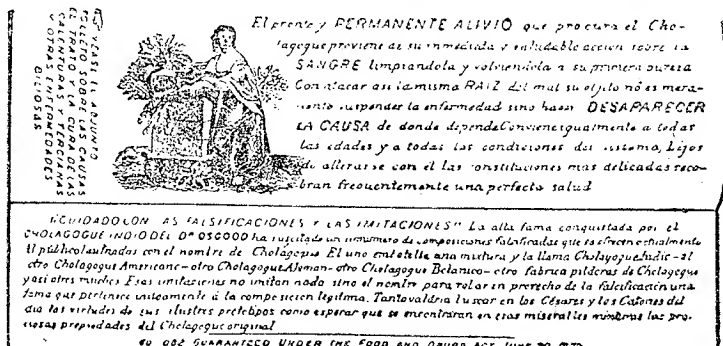 VEASE EL ADJUNTO
FOLLETO SOBRE LAS CAUSAS
EL TRATO Y LA CURA DE LAS
CALENTURAS Y TERCIANAS
Y OTRAS ENFERMEDADES
BILIOSAS
El pronto y PERMANENTE ALIVIO que procura el Cho-
lagogue proviene de su inmediata y saludable accion sobre la
SANGRE limpiandola y volviendola a su primera pureza
Con atacar asi la misma RAIZ del mal su objeto nó es mera-
mente suspender la enfermedad sino hacer DESAPARECER
LA CAUSA de donde depende Conviene igualmente a todas
las edades y a todas las condiciones del sistema, Lijos
de alterarse con el las constituciones mas delicadas reco-
bran frecuentemente una perfecta salud
"CUIDADO CON LAS FALSIFICACIONES Y LAS IMITACIONES" La alta fama conquistada por el
CHOLAGOGUE INDIO DEL Dr OSGOOD ha suscitado un sinnumero de composiciones falsificadas que se ofrecen actualmente
al público con el nombre de Cholagogue El uno embotella una mixtura y la llama Cholagogue Indio - el
otro Cholagogue Americano - otro Cholagogue Aleman - otro Cholagogue Botanico - otro fabrica pildoras de Cholagogue
y asi otros muchos Esas imitaciones no imitan nada sino el nombre para robar en provecho de la falsificacion una
fama que pertenece unicamente á la composicion legitima. Tanto valdria buscar en los Césares y los Catones del
dia las virtudes de sus ilustres prototipos como esperar que se encontraran en esas miserables mixturas las pre-
ciosas propiedades del Cholagogue original
GUARANTEED UNDER THE FOOD AND DRUGS ACT JUNE 30